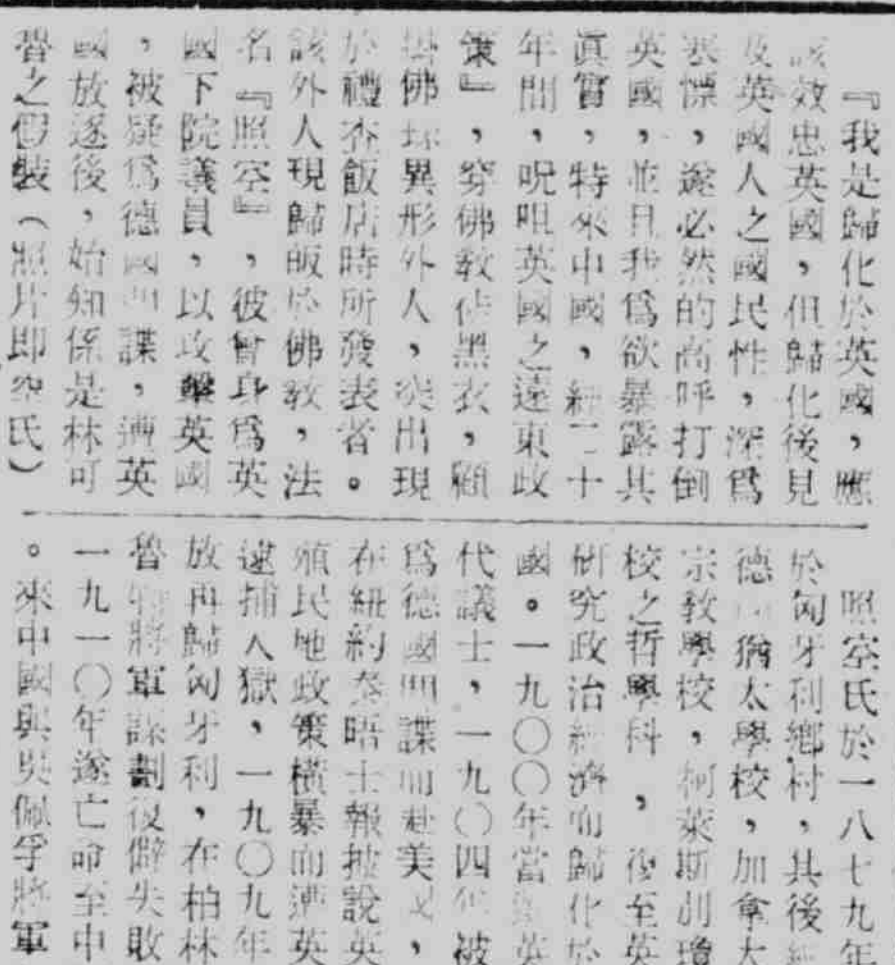 『我是歸化於英國，應
該效忠英國，但歸化後見
及英國人之國民性，深爲
寒慄，遂必然的高呼打倒
英國，並且我爲欲暴露其
眞實，特來中國，經二十
年間，呪咀英國之遠東政
策』，穿佛敎徒黑衣，顧
掛佛珠異形外人，突出現
於禮查飯店時所發表者。
該外人現歸皈於佛敎，法
名『照空』，彼曾身爲英
國下院議員，以攻擊英國
，被疑爲德國間諜，遭英
國放逐後，始知係是林可
督之假裝（照片即空氏）
照空氏於一八七九年
於匈牙利鄉村，其後經
德 猶太學校，加拿大
宗敎學校，柯萊斯 瓊
校之哲學科，復至英
研究政治經濟而歸化於
國。一九〇〇年當 英
代議士，一九〇四年被
爲德國間諜而赴美 ，
在紐約泰晤士報披說英
殖民地政策橫暴而遭英
逮捕入獄，一九〇九年
放再歸匈牙利，在柏林
魯 將軍謀劃復辟失敗
一九一〇年遂亡命至中
。來中國與吳佩孚將軍